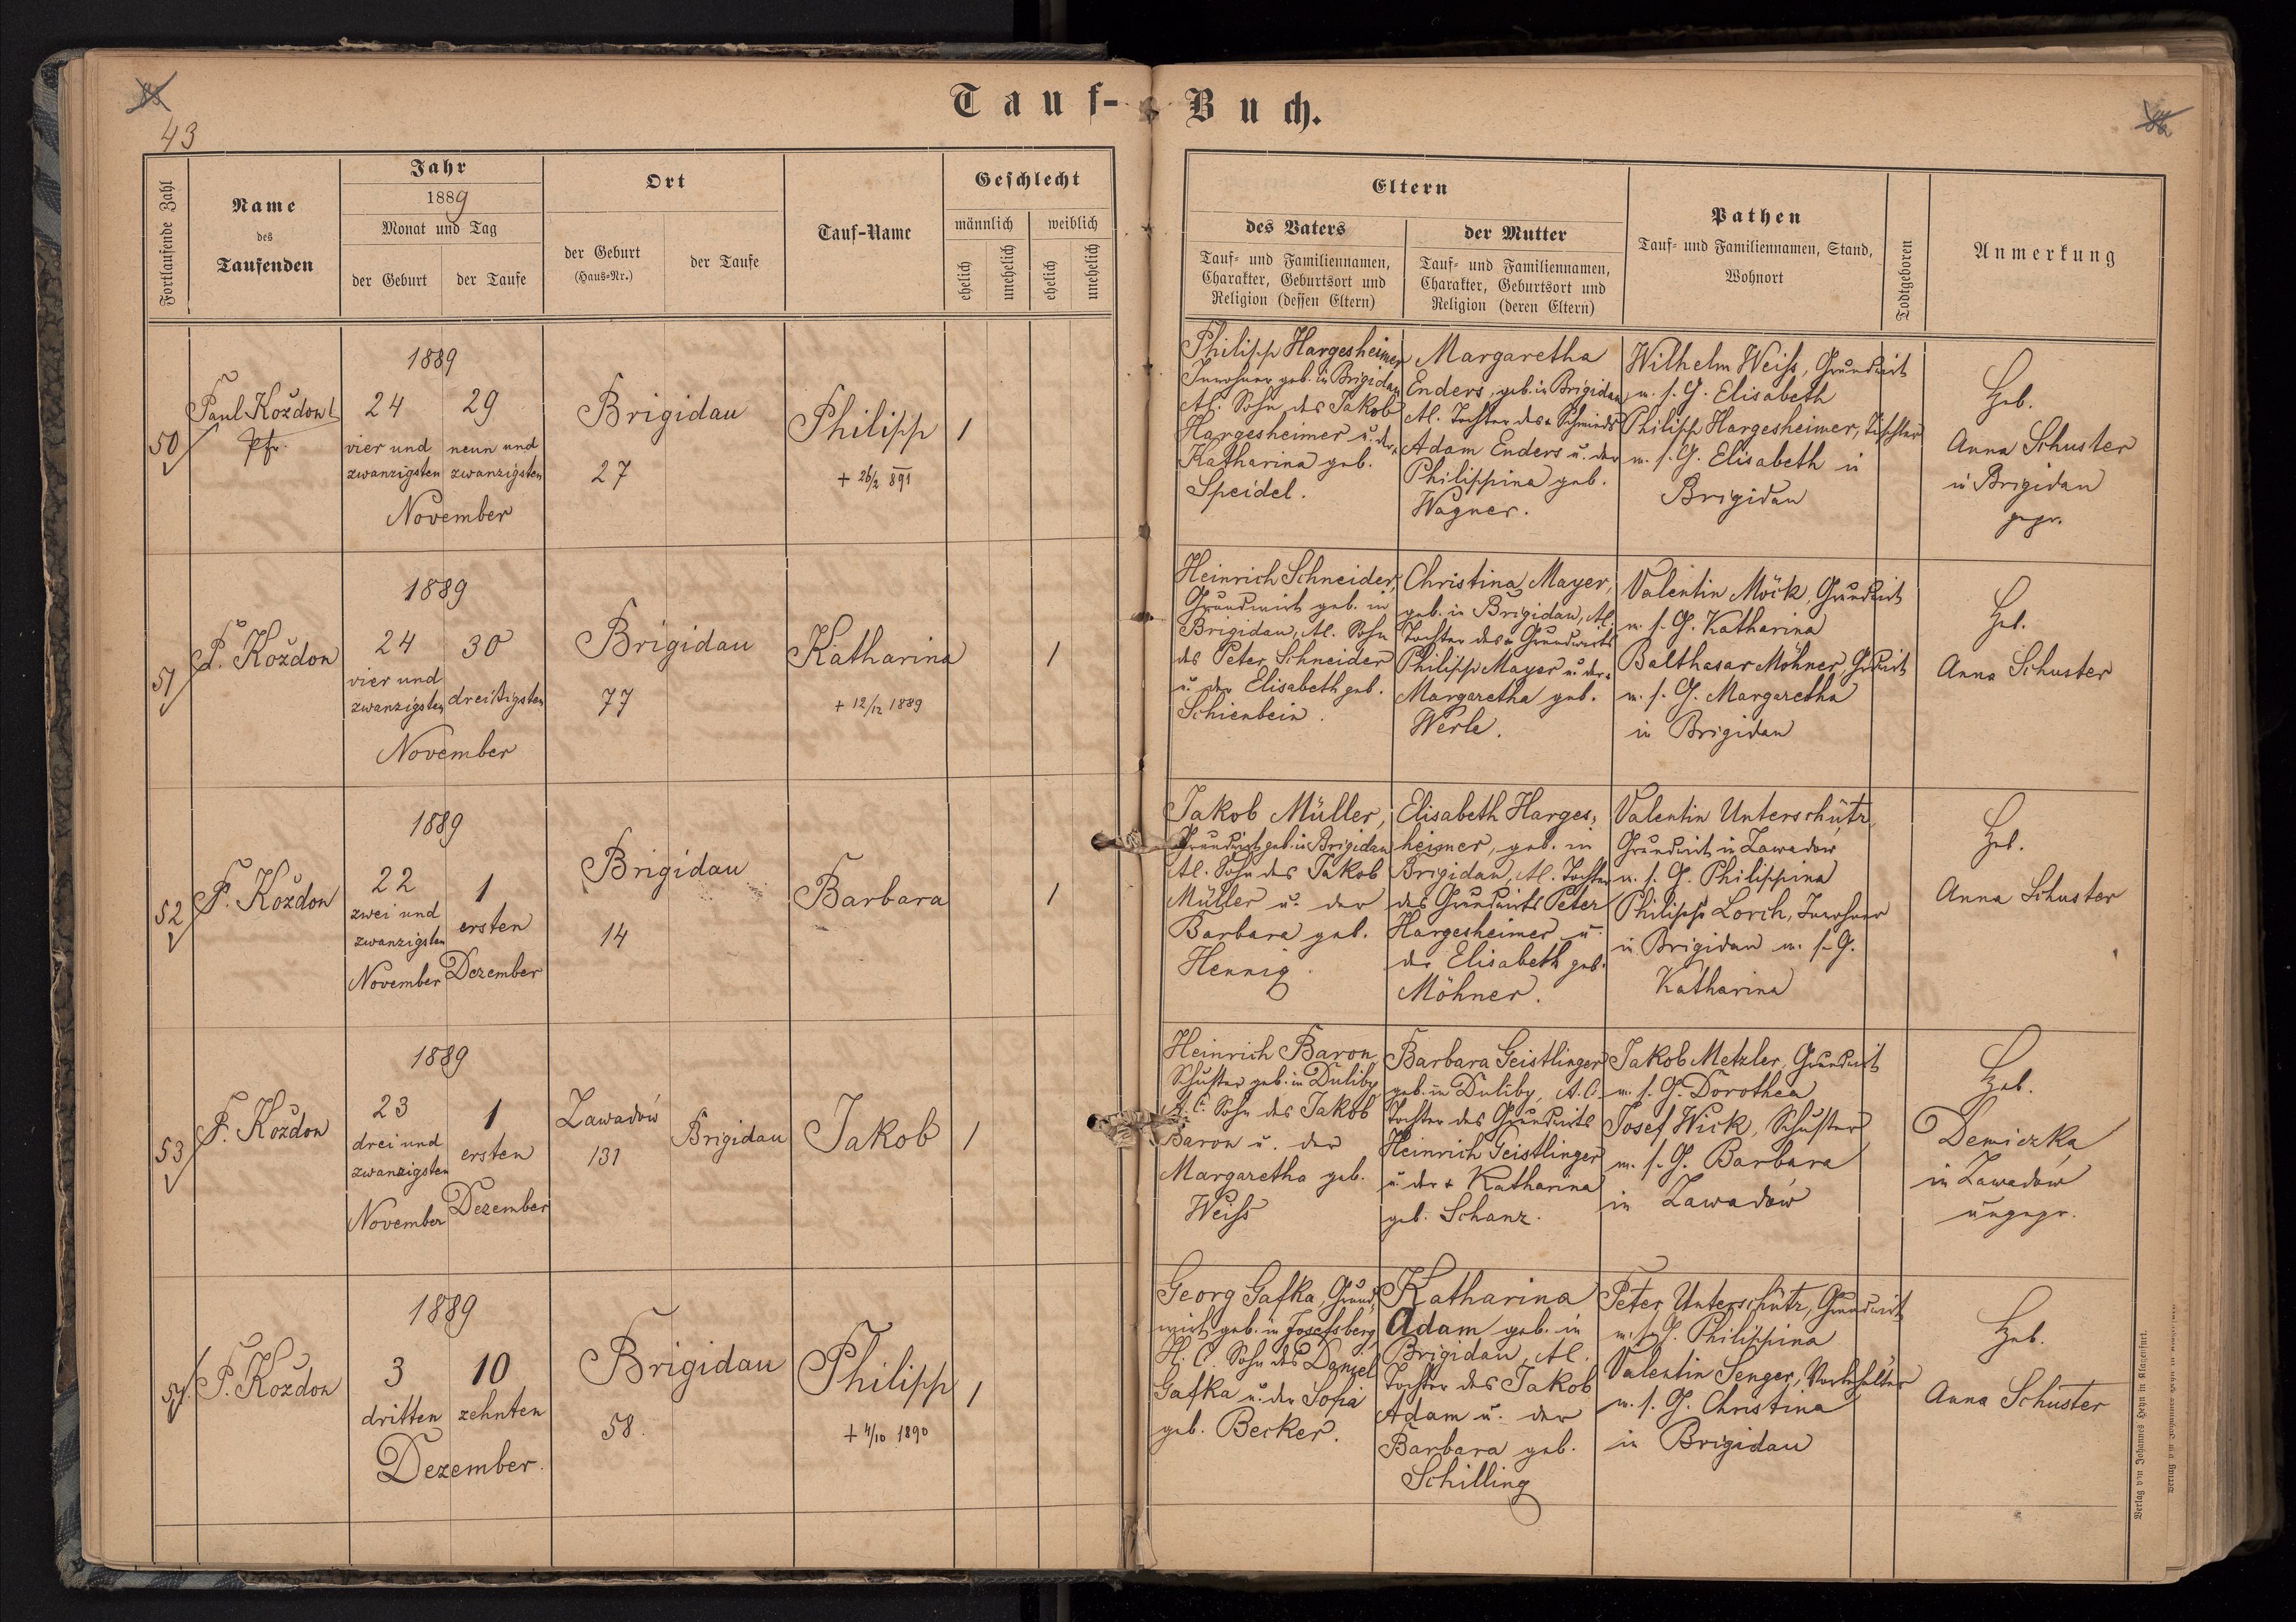 Tauf-Buch.
43
Fortlaufende Zahl
Name
des
Taufenden
Jahr
1889
Monat und Tag
der Geburt
der Taufe
Ort
der Geburt
(Haus-Nr.)
der Taufe
Tauf-Name
Geschlecht
männlich
weiblich
ehelich
unehelich
ehelich
unehelich
Eltern
des Vaters
Tauf- und Familiennamen,
Charakter, Geburtsort und
Religion (dessen Eltern)
der Mutter
Tauf- und Familiennamen,
Charakter, Geburtsort und
Religion (deren Eltern)
Pathen
Tauf- und Familiennamen, Stand,
Wohnort
Todtgeboren
Anmerkung
50
Paul Koždon
Pfr.
1889
24
vier und
zwanzigsten
29
neun und
zwanzigsten
November
Brigidau
27
Philipp
+ 26/2 891
1
Philipp Hargesheimer
Inwohner geb. in Brigidau
Al. Sohn des Jakob
Hargesheimer u. der
Katharina geb.
Speidel.
Margaretha
Enders, geb. in Brigidau
Al. Tochter des + Schmieds
Adam Enders u. der
Philippina geb.
Wagner.
Wilhelm Weiß, Grundwirt
m. s. G. Elisabeth
Philipp Hargesheimer, Tischler
m. s. G. Elisabeth in
Brigidau
Heb.
Anna Schuster
in Brigidau
gepr.
51
P. Koždon
1889
24
vier und
zwanzigsten
30
dreißigsten
November
Brigidau
77
Katharina
+ 12/12 1889
1
Heinrich Schneider,
Grundwirt geb. in
Brigidau, Al. Sohn
des Peter Schneider
u. der Elisabeth geb.
Schienbein.
Christina Mayer,
geb. in Brigidau, Al.
Tochter des + Grundwirts
Philipp Mayer u. der +
Margaretha geb.
Werle.
Valentin Möck, Grundwirt
m. s. G. Katharina
Balthasar Möhner, Grdwirt
m. s. G. Margaretha
in Brigidau
Heb.
Anna Schuster
52
P. Koždon
1889
22
zwei und
zwanzigsten
November
1
ersten
Dezember
Brigidau
14
Barbara
1
Jakob Müller,
Grundwirt geb. in Brigidau
Al. Sohn des Jakob
Müller u. der
Barbara geb.
Hennig.
Elisabeth Harges-
heimer, geb. in
Brigidau, Al. Tochter
des Grundwirts Peter
Hargesheimer u.
der Elisabeth geb.
Möhner.
Valentin Unterschütz,
Grundwirt in Zawadów
m. s. G. Philippina
Philipp Lorch, Inwohner
in Brigidau m. s. G.
Katharina
Heb.
Anna Schuster
53
P. Koždon
1889
23
drei und
zwanzigsten
November
1
ersten
Dezember
Zawadów
131
Brigidau
Jakob
1
Heinrich Baron
Schuster geb. in Duliby
A. C. Sohn des Jakob
Baron u. der
Margaretha geb.
Weiß
Barbara Geistlinger
geb. in Duliby, A. C.
Tochter des Grundwirts
Heinrich Geistlinger
u. der + Katharina
geb. Schanz.
Jakob Metzler, Grundwirt
m. s. G. Dorothea
Josef Wick, Schuster
m. s. G. Barbara
in Zawadów
Heb.
Demiczka
in Zawadów
ungepr.
54
P. Koždon
1889
3
dritten
10
zehnten
Dezember.
Brigidau
58.
Philipp
+ 4/10 1890
1
Georg Gafka Grund-
wirt geb. in Josefsberg
H. C. Sohn des Daniel
Gafka u. der Sofia
geb. Becker.
Katharina
Adam geb. in
Brigidau, Al.
Tochter des Jakob
Adam u. der
Barbara geb.
Schilling
Peter Unterschütz, Grundwirt
m. s. G. Philippina
Valentin Senger, Vorbehälter
m. s. G. Christina
in Brigidau
Heb.
Anna Schuster
Verlag von Johannes Heyn in Klagenfurt.